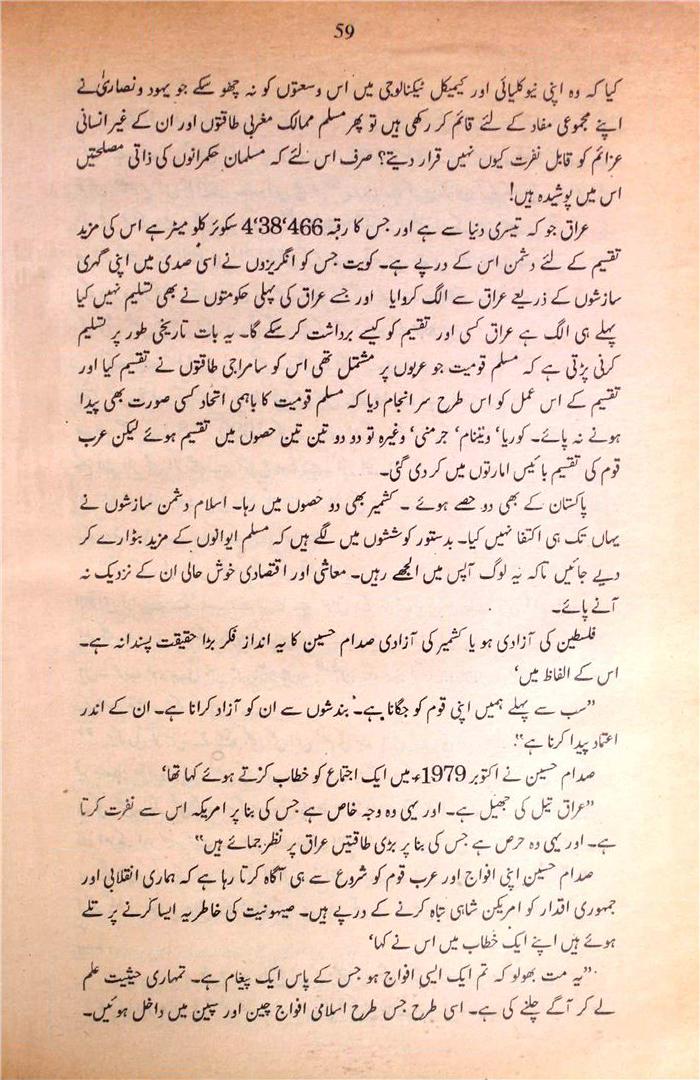 59
کیا کہ وہ اپنی نیوکلیائی اور کیمیکل ٹیکنالوجی میں اس وسعتوں کو نہ چھو سکے جو یہود و نصاریٰ نے
اپنے مجموعی مفاد کے لئے قائم کر رکھی ہیں تو پھر مسلم ممالک مغربی طاقتوں اور ان کے غیر انسانی
عزائم کو قابل نفرت کیوں نہیں قرار دیتے؟ صرف اس لئے کہ مسلمان حکمرانوں کی ذاتی مصلحتیں
اس میں پوشیدہ ہیں!
عراق جو کہ تیسری دنیا سے ہے اور جس کا رقبہ 4‘38‘466 سکوئر کلو میٹر ہے اس کی مزید
تقسیم کے لئے دشمن اس کے درپے ہے۔ کویت جس کو انگریزوں نے اسی صدی میں اپنی گہری
سازشوں کے ذریعے عراق سے الگ کروایا اور جسے عراق کی پہلی حکومتوں نے بھی تسلیم نہیں کیا
پہلے ہی الگ ہے عراق کسی اور تقسیم کو کیسے برداشت کر سکے گا۔ یہ بات تاریخی طور پر تسلیم
کرنی پڑتی ہے کہ مسلم قومیت جو عربوں پر مشتمل تھی اس کو سامراجی طاقتوں نے تقسیم کیا اور
تقسیم کے اس عمل کو اس طرح سر انجام دیا کہ مسلم قومیت کا باہمی اتحاد کسی صورت بھی پیدا
ہونے نہ پائے۔ کوریا‘ ویتنام‘ جرمنی‘ وغیرہ تو دو دو تین تین حصوں میں تقسیم ہوئے لیکن عرب
قوم کی تقسیم بائیس امارتوں میں کر دی گئی۔
پاکستان کے بھی دو حصے ہوئے ۔ کشمیر بھی دو حصوں میں رہا۔ اسلام دشمن سازشوں نے
یہاں تک ہی اکتفا نہیں کیا۔ بدستور کوششوں میں لگے ہیں کہ مسلم ایوانوں کے مزید بٹوارے کر
دیے جائیں تاکہ یہ لوگ آپس میں الجھے رہیں۔ معاشی اور اقتصادی خوش حالی ان کے نزدیک نہ
آنے پائے۔
فلسطین کی آزادی ہو یا کشمیر کی آزادی صدام حسین کا یہ انداز فکر بڑا حقیقت پسندانہ ہے۔
اس کے الفاظ میں‘
”سب سے پہلے ہمیں اپنی قوم کو جگانا ہے۔ بندشوں سے ان کو آزاد کرانا ہے۔ ان کے اندر
اعتماد پیدا کرنا ہے“۔
صدام حسین نے اکتوبر 1979ء میں ایک اجتماع کو خطاب کرتے ہوئے کہا تھا‘
”عراق تیل کی جھیل ہے۔ اور یہی وہ وجہ خاص ہے جس کی بنا پر امریکہ اس سے نفرت کرتا
ہے۔ اور یہی وہ حرص ہے جس کی بنا پر بڑی طاقتیں عراق پر نظر جمائے ہیں“
صدام حسین اپنی افواج اور عرب قوم کو شروع سے ہی آگاہ کرتا رہا ہے کہ ہماری انقلابی اور
جمہوری اقدار کو امریکن شاہی تباہ کرنے کے درپے ہیں۔ صیہونیت کی خاطر یہ ایسا کرنے پر تلے
ہوئے ہیں اپنے ایک خطاب میں اس نے کہا‘
”یہ مت بھولو کہ تم ایک ایسی افواج ہو جس کے پاس ایک پیغام ہے۔ تمہاری حیثیت علم
لے کر آگے چلنے کی ہے۔ اسی طرح جس طرح اسلامی افواج چین اور سپین میں داخل ہوئیں۔